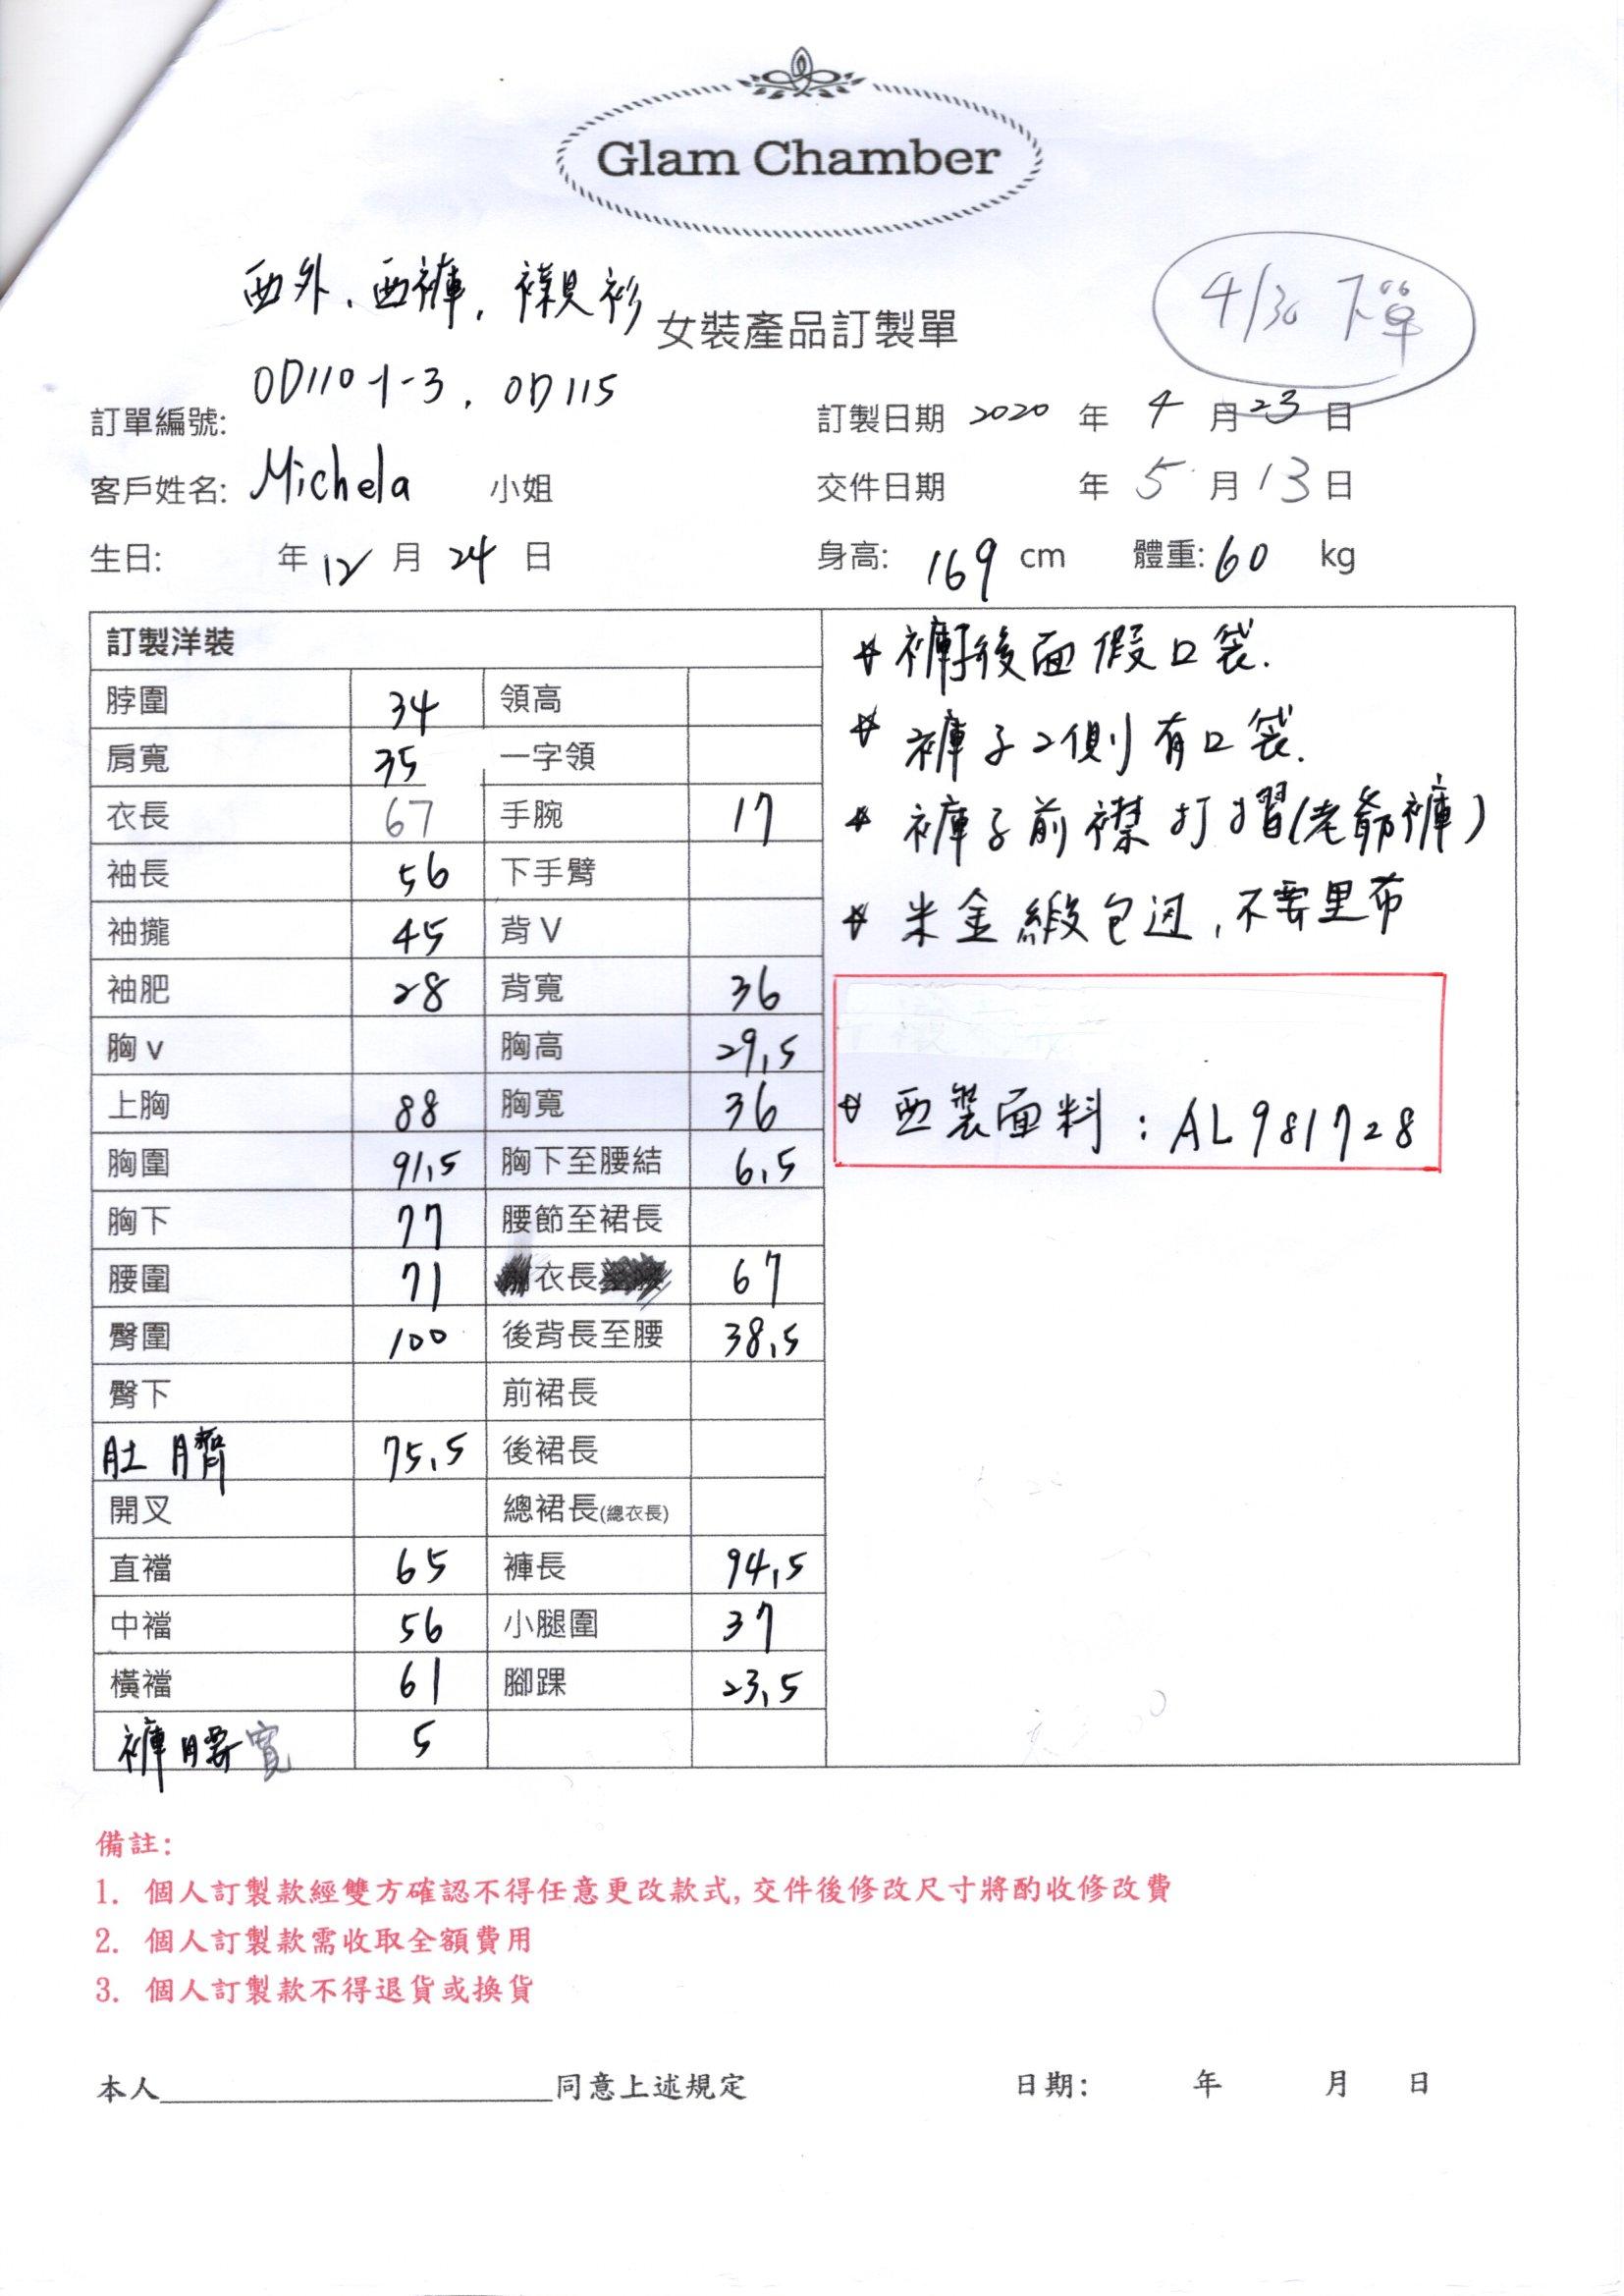 Glam Chamber
西外、西褲，襯衫
4/30 下單
女裝產品訂製單
訂單編號: OD110-1-3, OD115
訂製日期 2020 年 4 月 23 日
客戶姓名: Michela 小姐
交件日期 年 5 月 13 日
生日: 年 12 月 24 日
身高: 169 cm 體重: 60 kg
訂製洋裝
脖圍 34 領高
肩寬 35 一字領
衣長 67 手腕 17
袖長 56 下手臂
袖攏 45 背V
袖肥 28 背寬 36
胸v 胸高 29.5
上胸 88 胸寬 36
胸圍 91.5 胸下至腰結 6.5
胸下 77 腰節至裙長
腰圍 71 衣長 67
臀圍 100 後背長至腰 38.5
臀下 前裙長
肚臍 75.5 後裙長
開叉 總裙長(總衣長)
直襠 65 褲長 94.5
中襠 56 小腿圍 37
橫襠 61 腳踝 23.5
褲腰寬 5
褲子後面假口袋.
褲子2側有口袋.
褲子前襟打摺(老爺褲)
米金緞包边，不要里布
西裝面料：AL981728
備註:
1. 個人訂製款經雙方確認不得任意更改款式, 交件後修改尺寸將酌收修改費
2. 個人訂製款需收取全額費用
3. 個人訂製款不得退貨或換貨
本人____________________同意上述規定
日期: 年 月 日